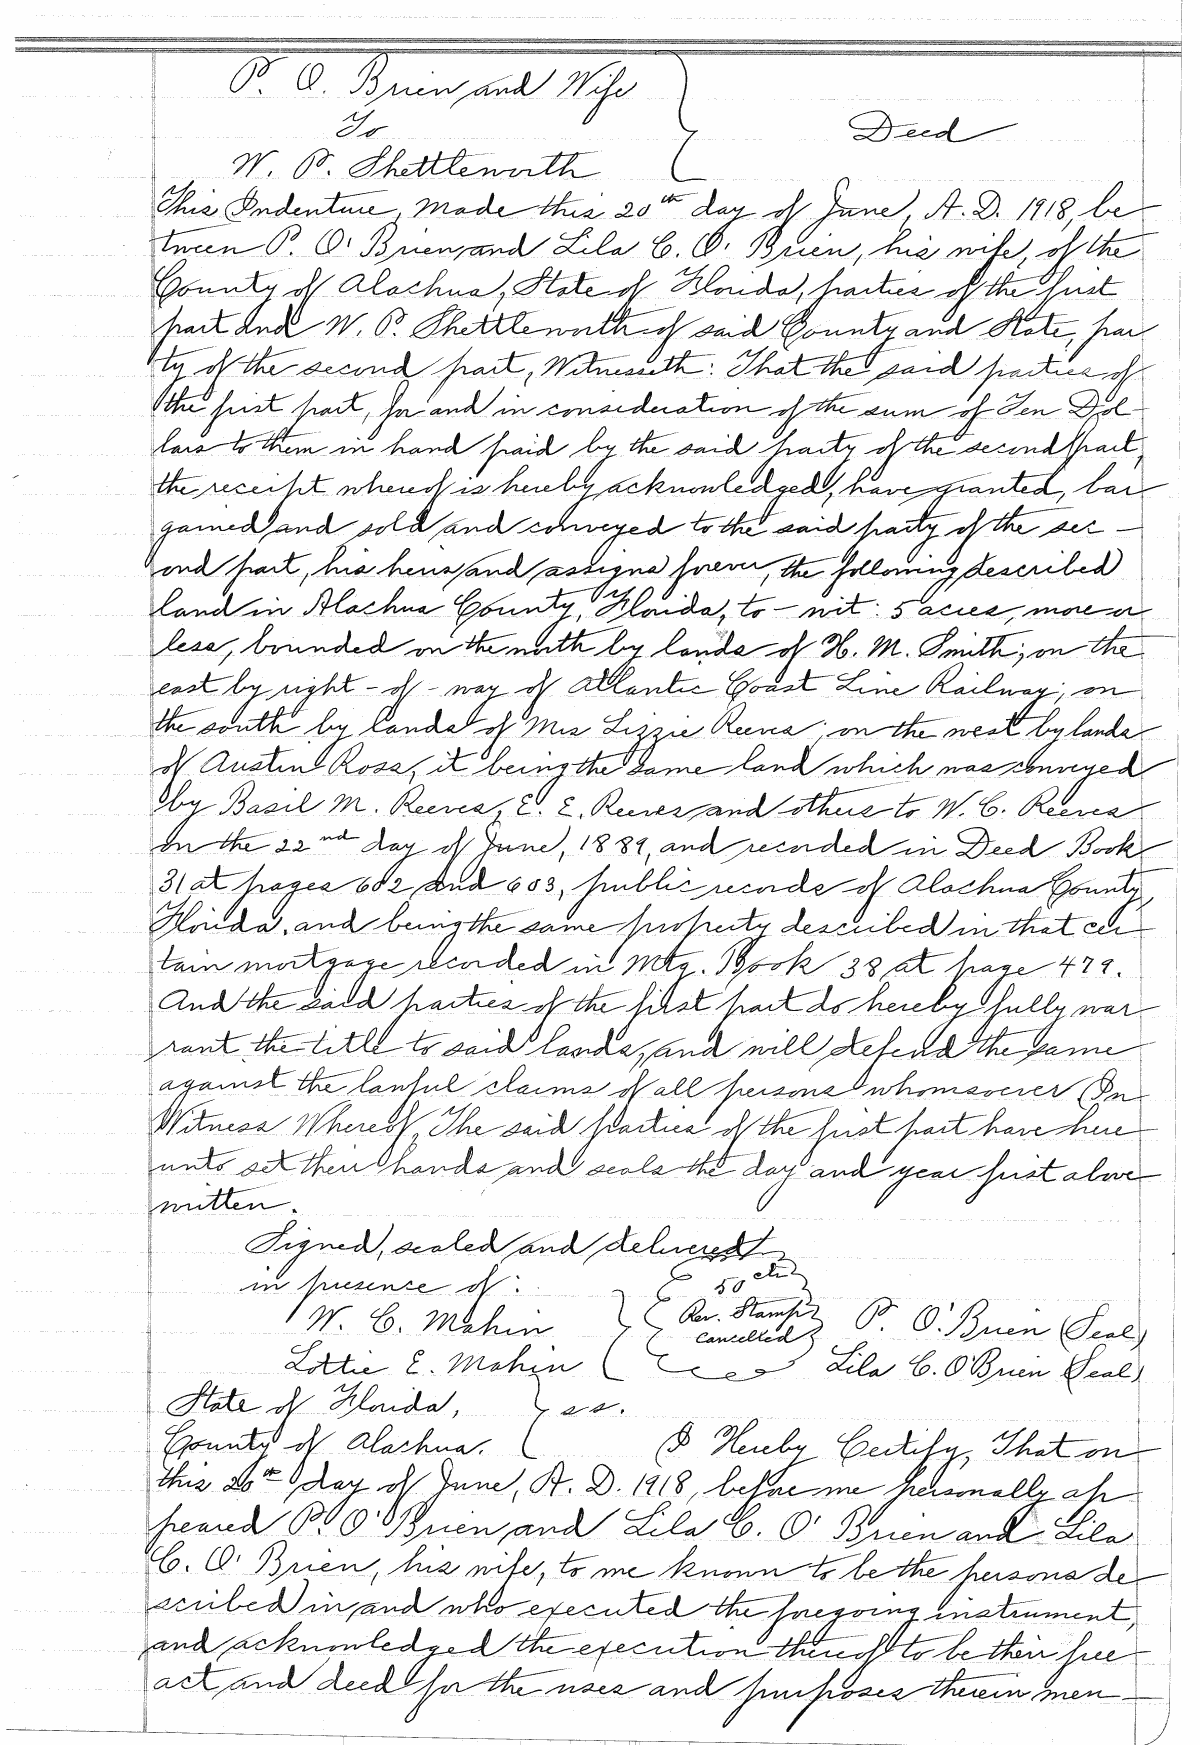 P. O. Brien and Wife
To
Deed
W. P. Shettleworth
This Indenture, Made this 20th day of June, A. D. 1918, be
tween P. O' Brien, and Lila C. O' Brien, his wife, of the
County of Alachua, State of Florida, parties of the first
part and W. P. Shettleworth of said County and State, par
ty of the second part, Witnesseth: That the said parties of
the first part, for and in consideration of the sum of Ten Dol
lars to them in hand paid by the said party of the second part,
the receipt whereof is hereby acknowledged, have granted, bar
gained and sold and conveyed to the said party of the sec-
ond part, his heirs and assigns forever, the following described
land in Alachua County, Florida, to-wit: 5 acres, more or
less, bounded on the north by lands of H. M. Smith; on the
east by right-of-way of Atlantic Coast Line Railway; on
the south by lands of Mrs Lizzie Reeves; on the west by lands
of Austin Ross, it being the same land which was conveyed
by Basil M. Reeves, E. E. Reeves and others to W. C. Reeves
on the 22nd day of June, 1889, and recorded in Deed Book
31 at pages 602 and 603, public records of Alachua County,
Florida, and being the same property described in that cer
tain mortgage recorded in Mtg. Book 38 at page 479.
And the said parties of the first part do hereby fully war
rant the title to said lands, and will defend the same
against the lawful claims of all persons whomsoever In
Witness Whereof, The said parties of the first part have here
unto set their hands and seals the day and year first above
written.
Signed, sealed and delivered
in presence of:
50 cts
W. C. Mahin
Rev. Stamps
cancelled
P. O'Brien (Seal)
Lottie E. Mahin
Lila C. O'Brien (Seal)
State of Florida,
ss.
County of Alachua.
I Hereby Certify, That on
this 20th day of June, A. D. 1918, before me personally ap
peared P. O' Brien and Lila C. O' Brien and Lila
C. O' Brien, his wife, to me known to be the persons de
scribed in and who executed the foregoing instrument,
and acknowledged the execution thereof to be their free
act and deed for the uses and purposes therein men-